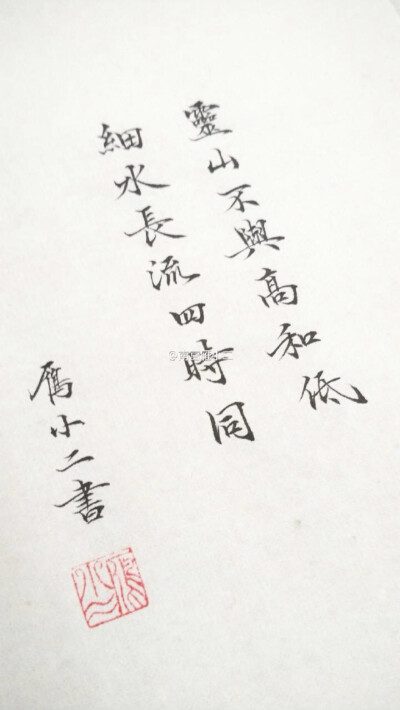 靈山不與高和低
細水長流四時同
雁小二書